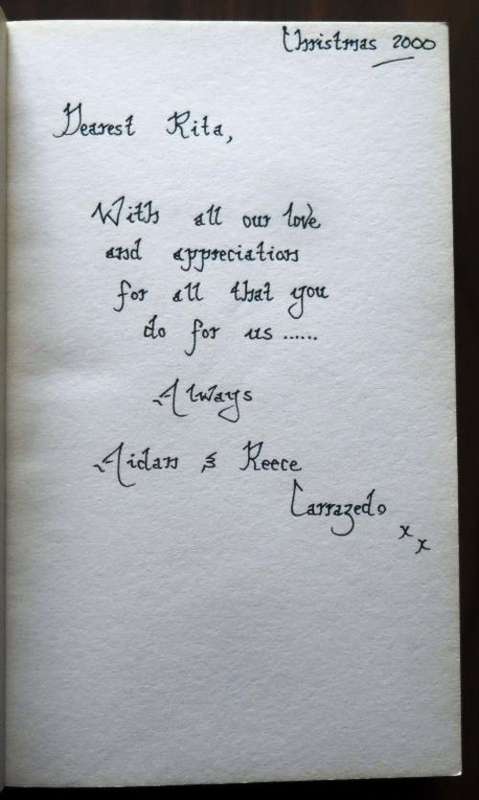 Christmas 2000
Dearest Rita,
With all our love
and appreciation
for all that you
do for us ......
Always
Aidan & Reece
Carrazedo
x
x